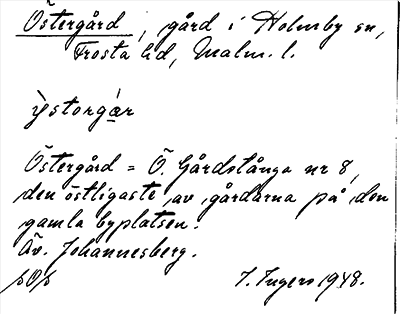 Östergård, gård i Holmby sn,
Frosta hd, Malm. l.
ỳstorgár
Östergård = Ö. Gårdstånga nr 8,
den östligaste av gårdarna på den
gamla byplatsen.
Äv. Johannesberg.
I. Ingers 1948.